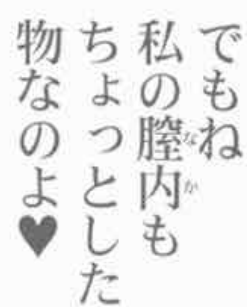 でもね
私の膣内も
ちょっとした
物なのよ♥